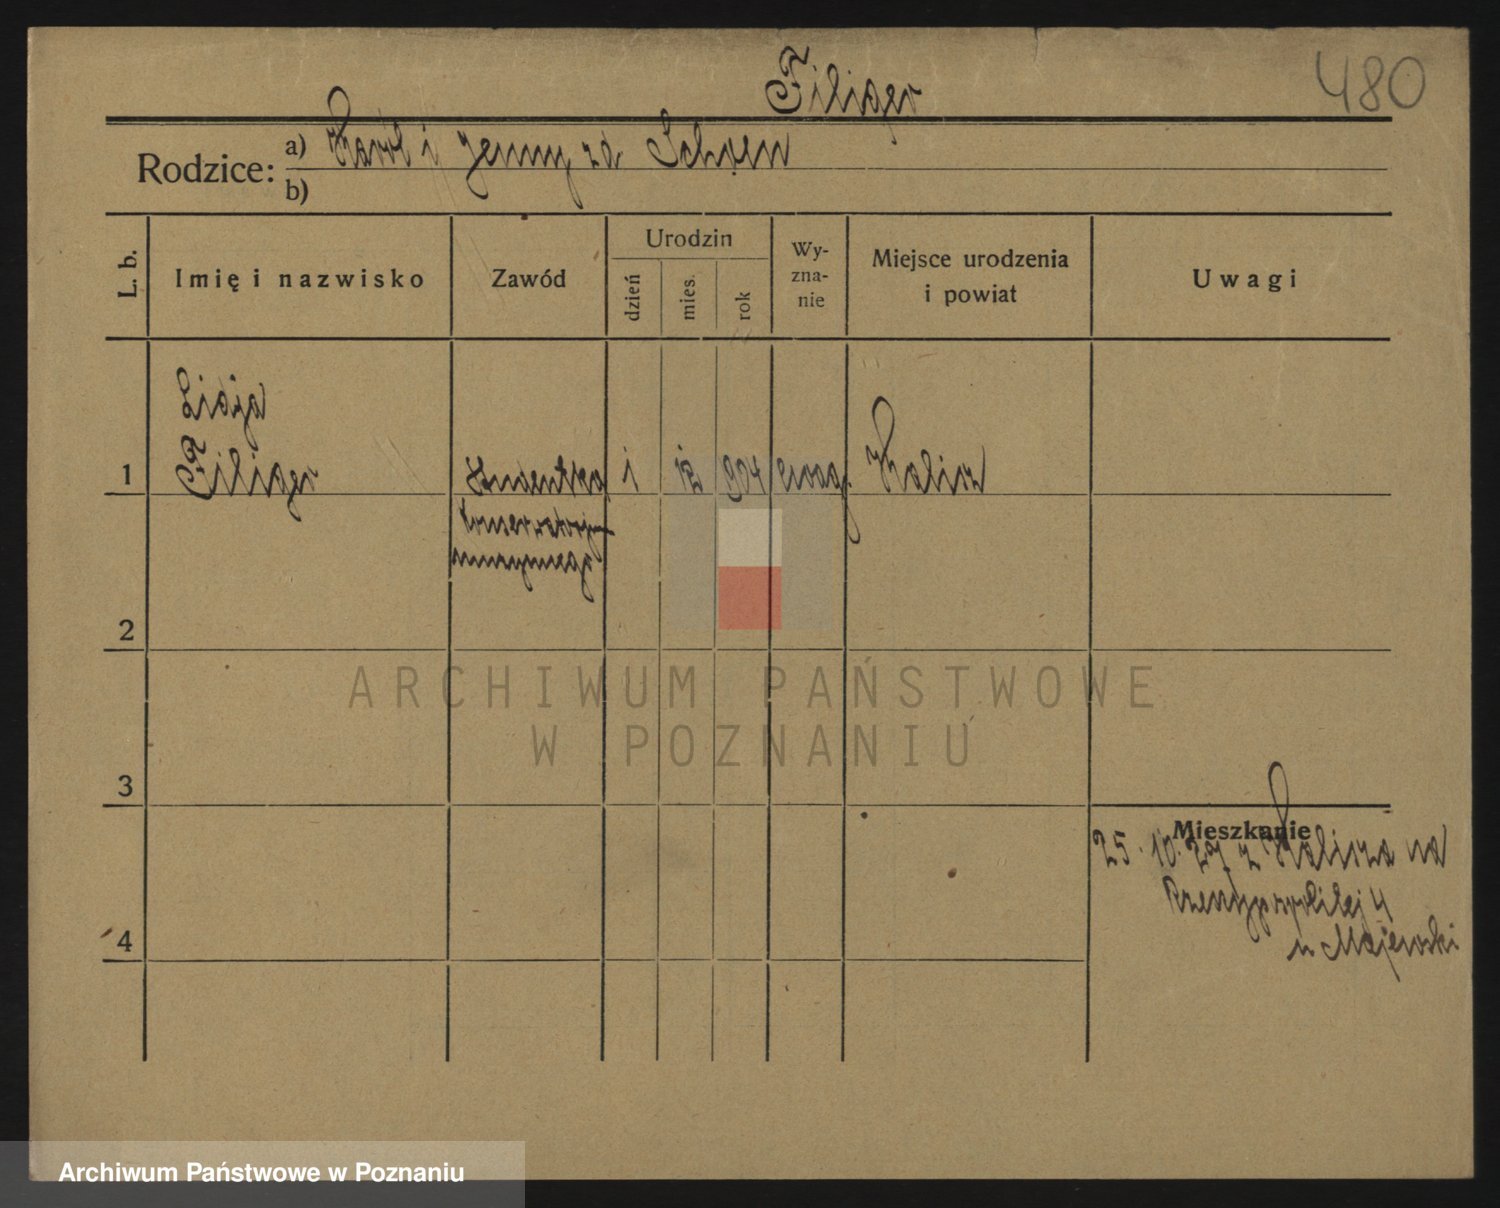 480
Filiger
Rodzice: a) Karol i Jenny zd Schoen
b)
L. b.
Imię i nazwisko
Zawód
Urodzin
dzień
mies.
rok
Wy-
zna-
nie
Miejsce urodzenia
i powiat
Uwagi
Lidja
1 Filiger Studentka 1 12 904 ewag. Kalisz
konserwatorjum
muzycznego
2
ARCHIWUM PAŃSTWOWE
W POZNANIU
3
Mieszkanie
25. 10. 27 z Kalisza na
Rzeczypospolitej 4
u Majewski
4
Archiwum Państwowe w Poznaniu